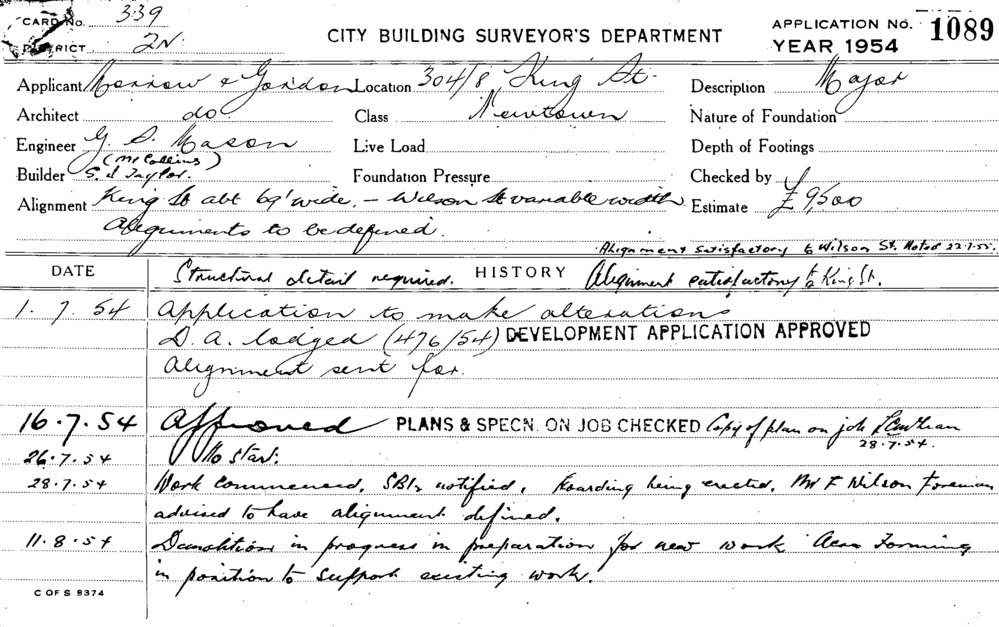 CARD No. 339
DISTRICT 2N.
CITY BUILDING SURVEYOR'S DEPARTMENT
APPLICATION No. 1089
YEAR 1954
Applicant Morrow & Gordon Location 304/8 King St. Description Major
Architect do. Class Newtown Nature of Foundation
Engineer G. S. Mason Live Load Depth of Footings
(Mr Collins)
Builder S. J. Taylor. Foundation Pressure Checked by
Alignment King St abt 69' wide. – Wilson St variable width Estimate £9,500
Alignments to be defined.
Alignment satisfactory to Wilson St. Noted 22.7.55.
DATE Structural detail required. HISTORY Alignment satisfactory to King St.
1. 7. 54 Application to make alterations
D. A. lodged (476/54) DEVELOPMENT APPLICATION APPROVED
Alignment sent for.
16.7.54 Approved PLANS & SPECN. ON JOB CHECKED Copy of plan on job
28.7.54.
26.7.54 No start.
28.7.54 Work commenced. SBI notified. Hoarding being erected. Mr F Wilson Foreman
advised to have alignment defined.
11.8.54 Demolition in progress in preparation for new work Forming
in position to support existing work.
C OF S 9374